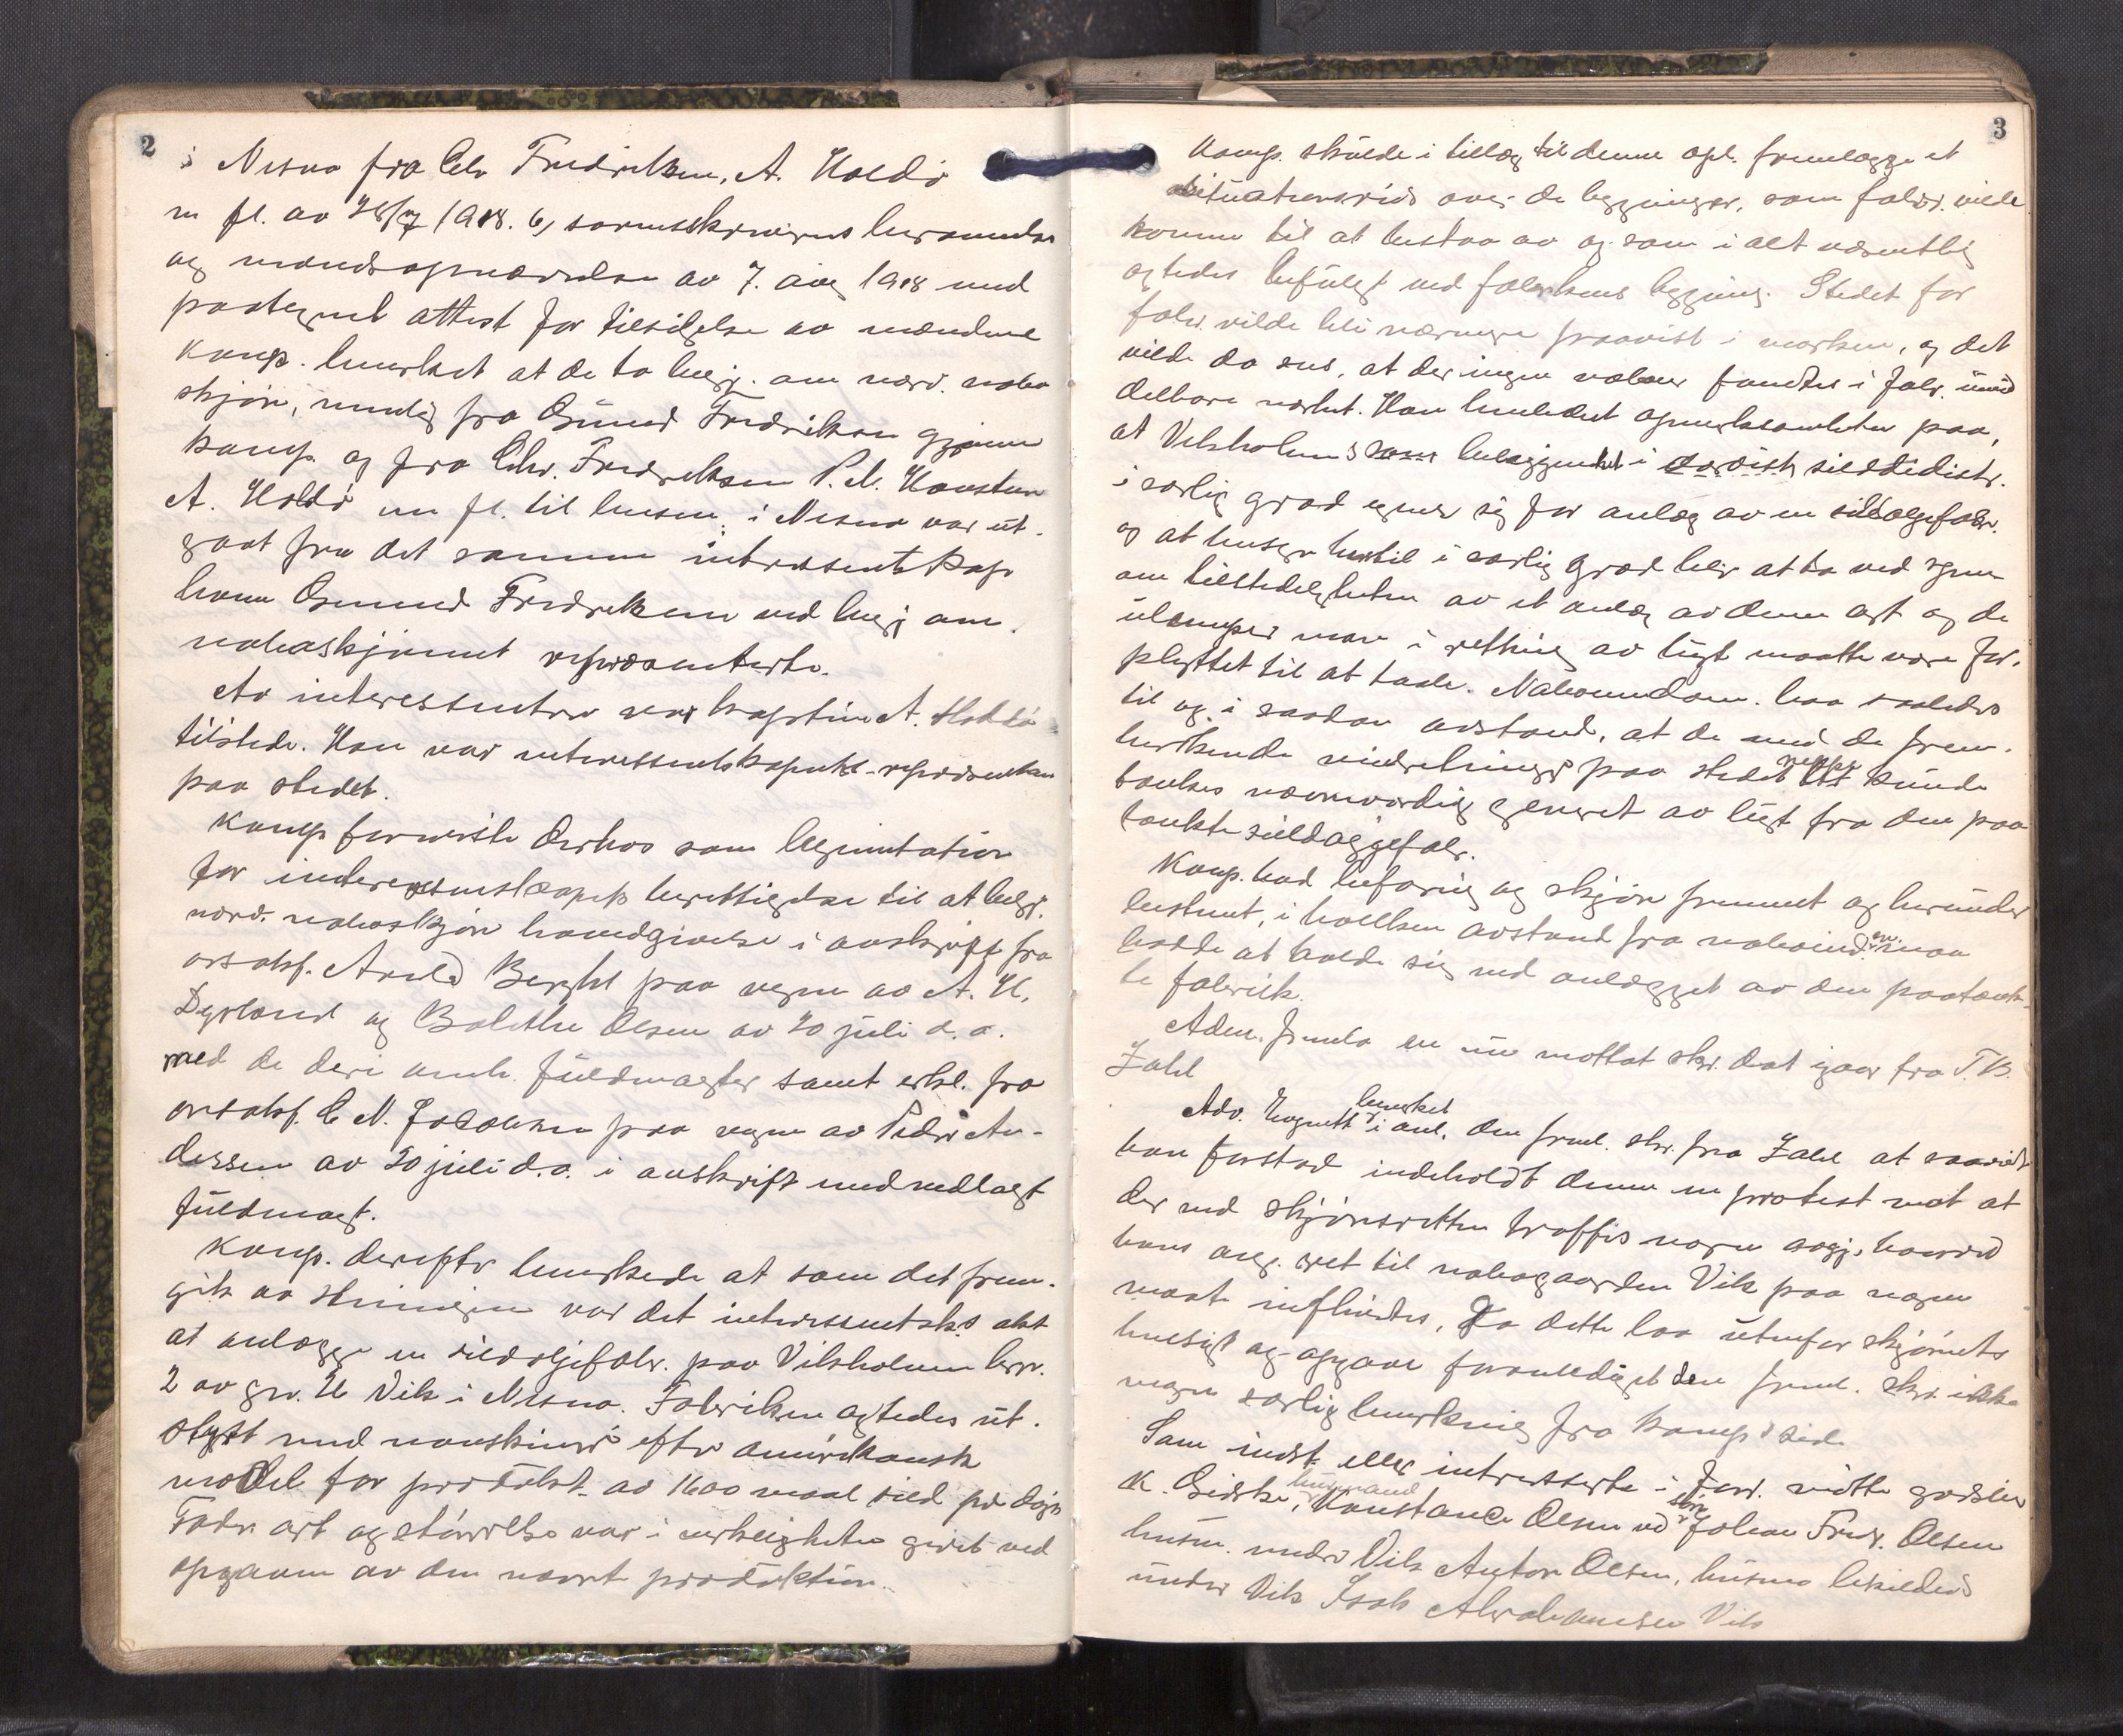 2
i Nesna fra Chr Fredriksen, A. Holdø
m fl. av 28/7 1918. 6, sorenskriverens berammelse
og mandsopnævnelse av 7. aug 1918 med
paategnet attest for tilsigelse av mændene
Komp. bemerket at de to begj. om nærv. nabo
skjøn, nemlig fra Osmund Fredriksen gjennem
komp. og fra Chr. Fredriksen P. M.
A. Holdø m fl. til lensm. i Nesna var ut-
gaat fra det samme interesentskap
hvem Osmund Fredriksen ved begj om
naboskjønnet repræsenterte.
Av interessenterne var kaptein A. Holdø
tilstede. Han var interessentskapets repræsentan
paa stedet.
Komp fremviste derhos som legimitation
for interessentskapets berettigelse til at begj.
nærv. naboskjøn havndgivelse i avskrift fra
o.r.sakf. Arnld Berghl paa vegne av A. H.
Dyrland og Bolethe Olsen av 20 juli d.a.
med de deri omh. fuldmagter samt erkl. fra
overrsakf. C N. Jacobsen paa vegne av Peder An-
dersen av 20 juli d.a. i avskrift med vedlagt
fuldmagt.
Komp. derefter bemerkede at som det frem-
gik av stevningen var det interessentsks akt
at anlægge en sildoljefabr. paa Vikholmen brn.
2 av gn. 26 Vik i Nesna. Fabrikken agtedes ut-
styrt med maskineri efter amerikansk
model for produkt. av 1600 maal sild pr døgn
Fabr art og størrelse var i virkeligheten givet ved
opgaven av den nævnte produktion.
3
Komp. skulde i tillæg til denne opl. fremlægge et
situationsrids over de bygninger, som fabr. vilde
komme til at bestaa av og som i alt væsentlig
agtedes befulgt ved fabrikens bygging. Stedet for
fabr. vilde bli nærmere paavist i marken, og det
vilde da sees, at der ingen naboer fandtes i fabr. umid
delbare nærhet. Han henledet opmerksomheten paa,
at Vikholmens som beliggenhet i sildedistr.
i særlig grad egner sig for anlæg av en sildoljefabr.
og at hensyn hertil i særlig grad blir at ta ved spm
om tilstedeligheten av et anlæg av denne art og de
ulemper man i retning av lugt maatte være for-
pligtet til at taale. Naboeiendom. laa saaledes
til og i saadan avstand, at de med de frem-
herskende vindretninger paa stedet neppe kunde
tænkes nævneværdig generet av lugt fra den paa
tænkte sildoljefabr.
Komp. bad befaring og skjøn fremmet og herunder
bestemt, i hvilken avstand fra naboeiend. en man
hadde at holde sig med anlægget av den paatænk-
te fabrik.
Adm. fremla en nu mottat skr. dat igaar fra T. B.
Zahl
Adv. bemerket i anl. den freml. skr. fra Zahl at saavidt
han forstod indeholdt denne en protest mot at
der ved skjønsretten træffes nogen avgj. hvorved
hans angr. ret til nabogaarden Vik paa nogen
maate influertes. Da dette laa utenfor skjønnets
hensigt og opgave foranlediget den freml. skr. ikke
nogen særlig bemerkning fra komp's side
Som indst. eller interesserte i forr. møtte godseier
K. husmand Konstance Olsen ved søn Johan Fredr. Olsen
husm. under Vik Anton Olsen, husmo
under Vik Isak Abrahamsen Vik